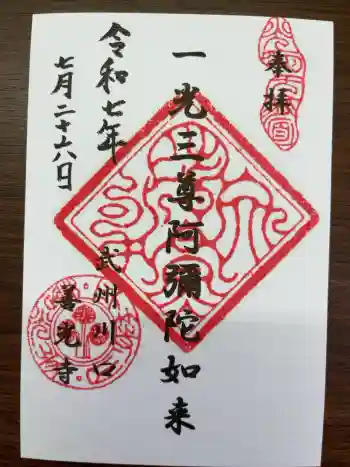 奉拝
一光三尊阿彌陀如来
令和七年
七月二十六日
武州川口
善光寺